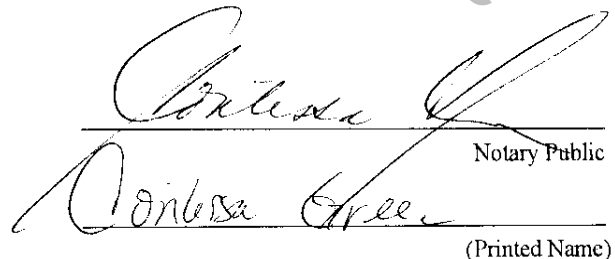 Contessa
Notary Public
Contessa Green
(Printed Name)